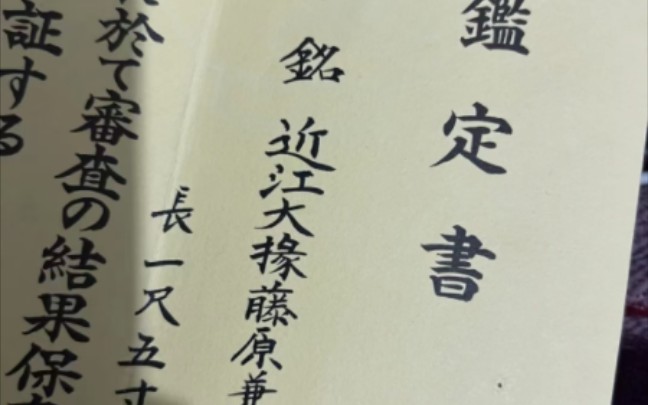 鑑定書
銘 近江大掾藤原兼
長一尺五寸
於て審査の結果保
証する